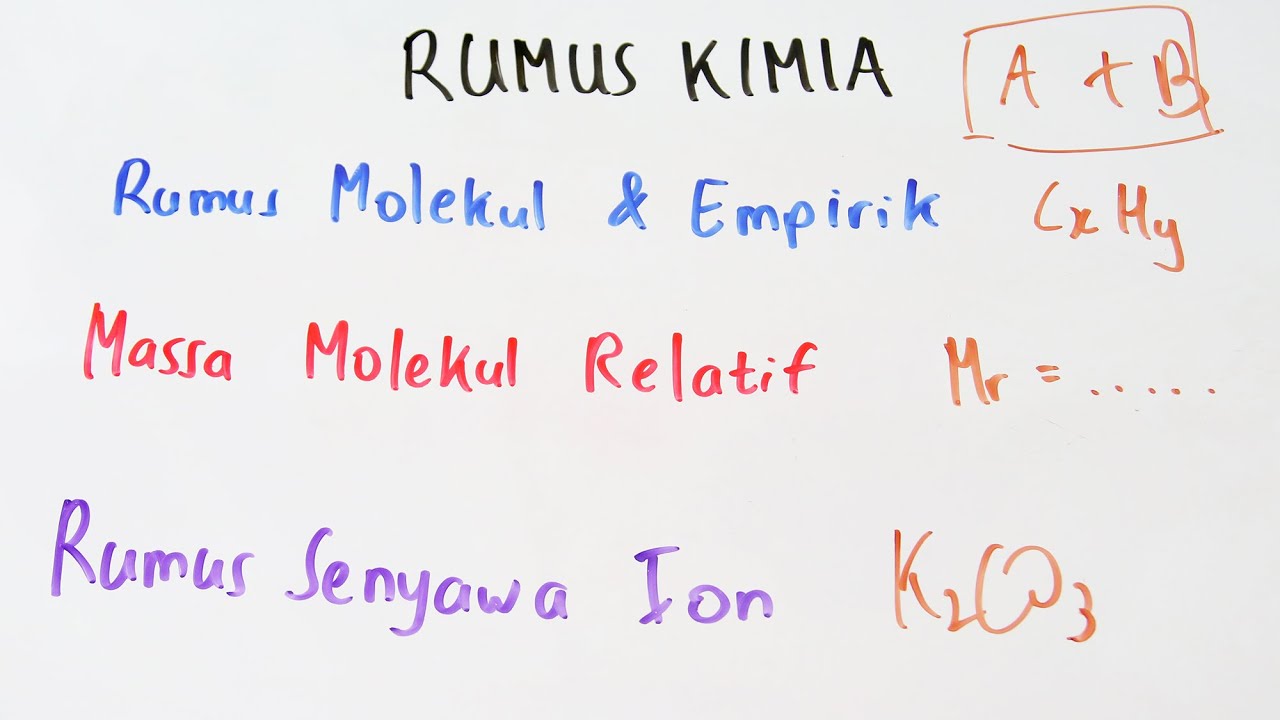 RUMUS KIMIA A + B
Rumus Molekul & Empirik CxHy
Massa Molekul Relatif Mr = ......
Rumus Senyawa Ion K2CO3